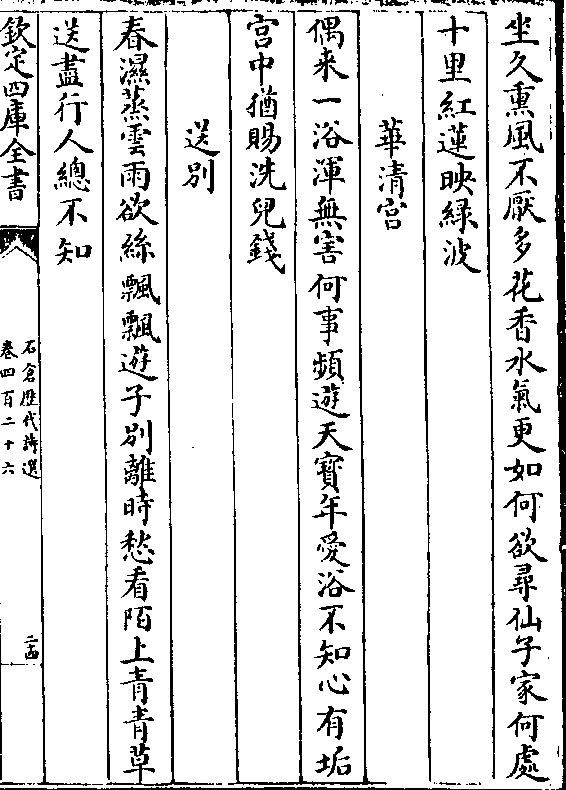 坐久熏風不厭多花香水氣更如何欲尋仙子家何處
十里紅蓮映綠波
華清宮
偶来一浴渾無害何事頻遊天寳年愛浴不知心有垢
宮中猶賜洗兒錢
送别
春濕蒸雲雨欲絲飄飄遊子别離時愁看陌上青青草
送盡行人總不知
欽定四庫全書
石倉歴代詩選
卷四百二十六
二十四